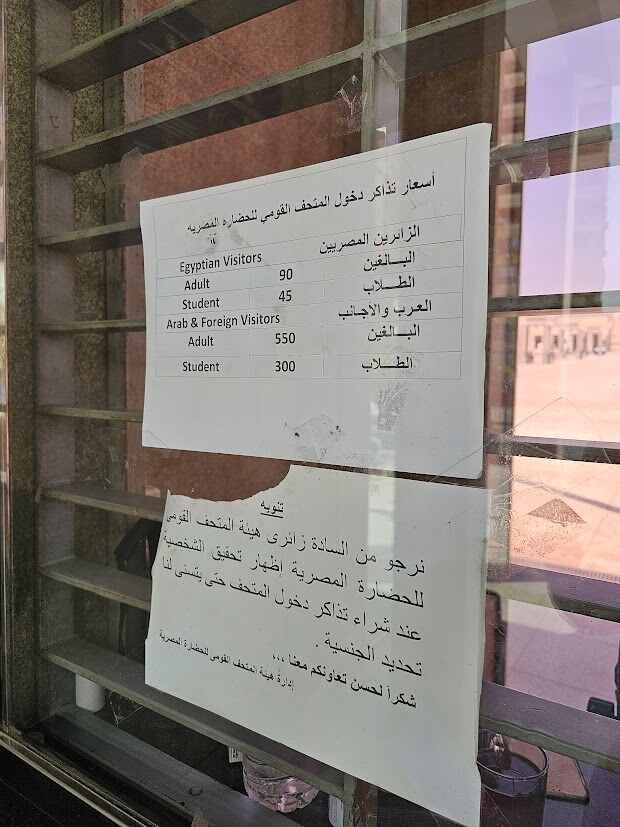 أسعار تذاكر دخول المتحف القومي للحضاره المصريه
Egyptian Visitors الزائرين المصريين
Adult 90 البـــالغين
Student 45 الطـــلاب
Arab & Foreign Visitors العرب والأجانب
Adult 550 البـــالغين
Student 300 الطـــلاب
تنويه
نرجو من السادة زائرى هيئة المتحف القومى
للحضارة المصرية إظهار تحقيق الشخصية
عند شراء تذاكر دخول المتحف حتى يتسنى لنا
تحديد الجنسية .
شكراً لحسن تعاونكم معنا ،،،
إدارة هيئة المتحف القومى للحضارة المصرية